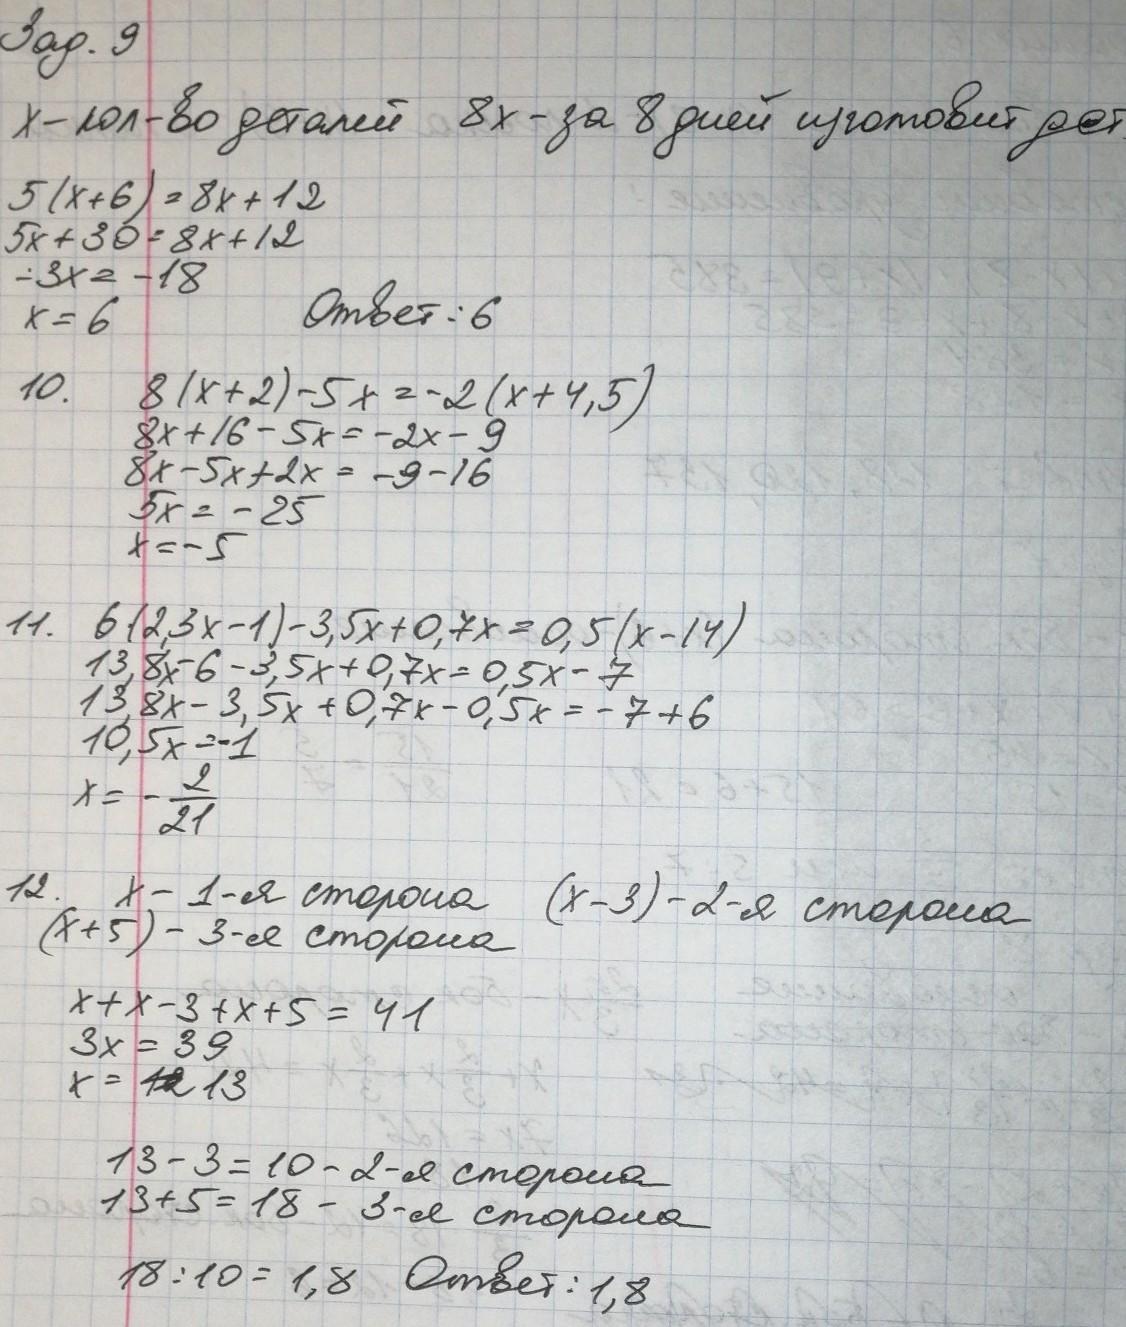 Зад. 9
x-кол-во деталей 8x-за 8 дней изготовит дет.
5(x+6)=8x+12
5x+30=8x+12
-3x=-18
x=6 Ответ: 6
10. 8(x+2)-5x=-2(x+4,5)
8x+16-5x=-2x-9
8x-5x+2x=-9-16
5x=-25
x=-5
11. 6(2,3x-1)-3,5x+0,7x=0,5(x-14)
13,8x-6-3,5x+0,7x=0,5x-7
13,8x-3,5x+0,7x-0,5x=-7+6
10,5x=-1
x=-2/21
12. x-1-я сторона (x-3)-2-я сторона
(x+5)-3-я сторона
x+x-3+x+5=41
3x=39
x=13
13-3=10-2-я сторона
13+5=18-3-я сторона
18:10=1,8 Ответ: 1,8